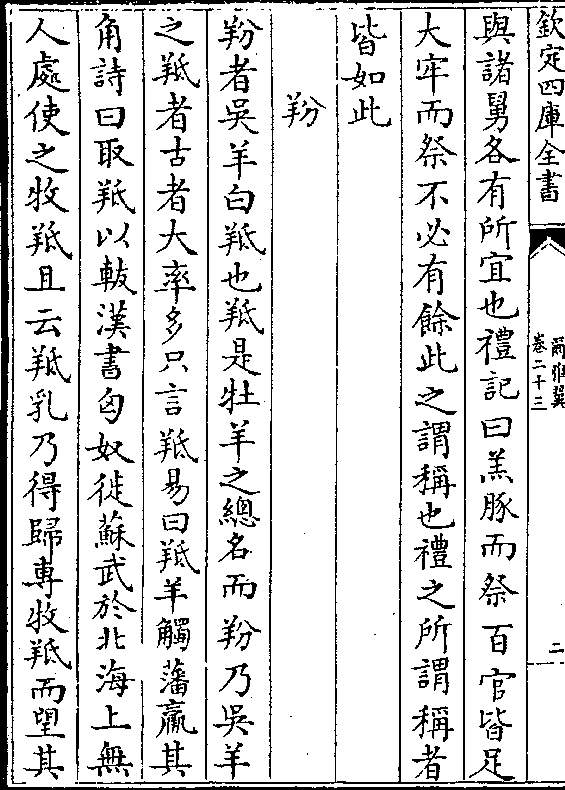 欽定四庫全書
爾雅翼
卷二十三
二
與諸舅各有所宜也禮記曰羔豚而祭百官皆足
大牢而祭不必有餘此之謂稱也禮之所謂稱者
皆如此
羒
羒者吳羊白羝也羝是牡羊之總名而羒乃吳羊
之羝者古者大率多只言羝易曰羝羊觸藩羸其
角詩曰取羝以軷漢書匈奴徙蘇武於北海上無
人處使之牧羝且云羝乳乃得歸專牧羝而望其